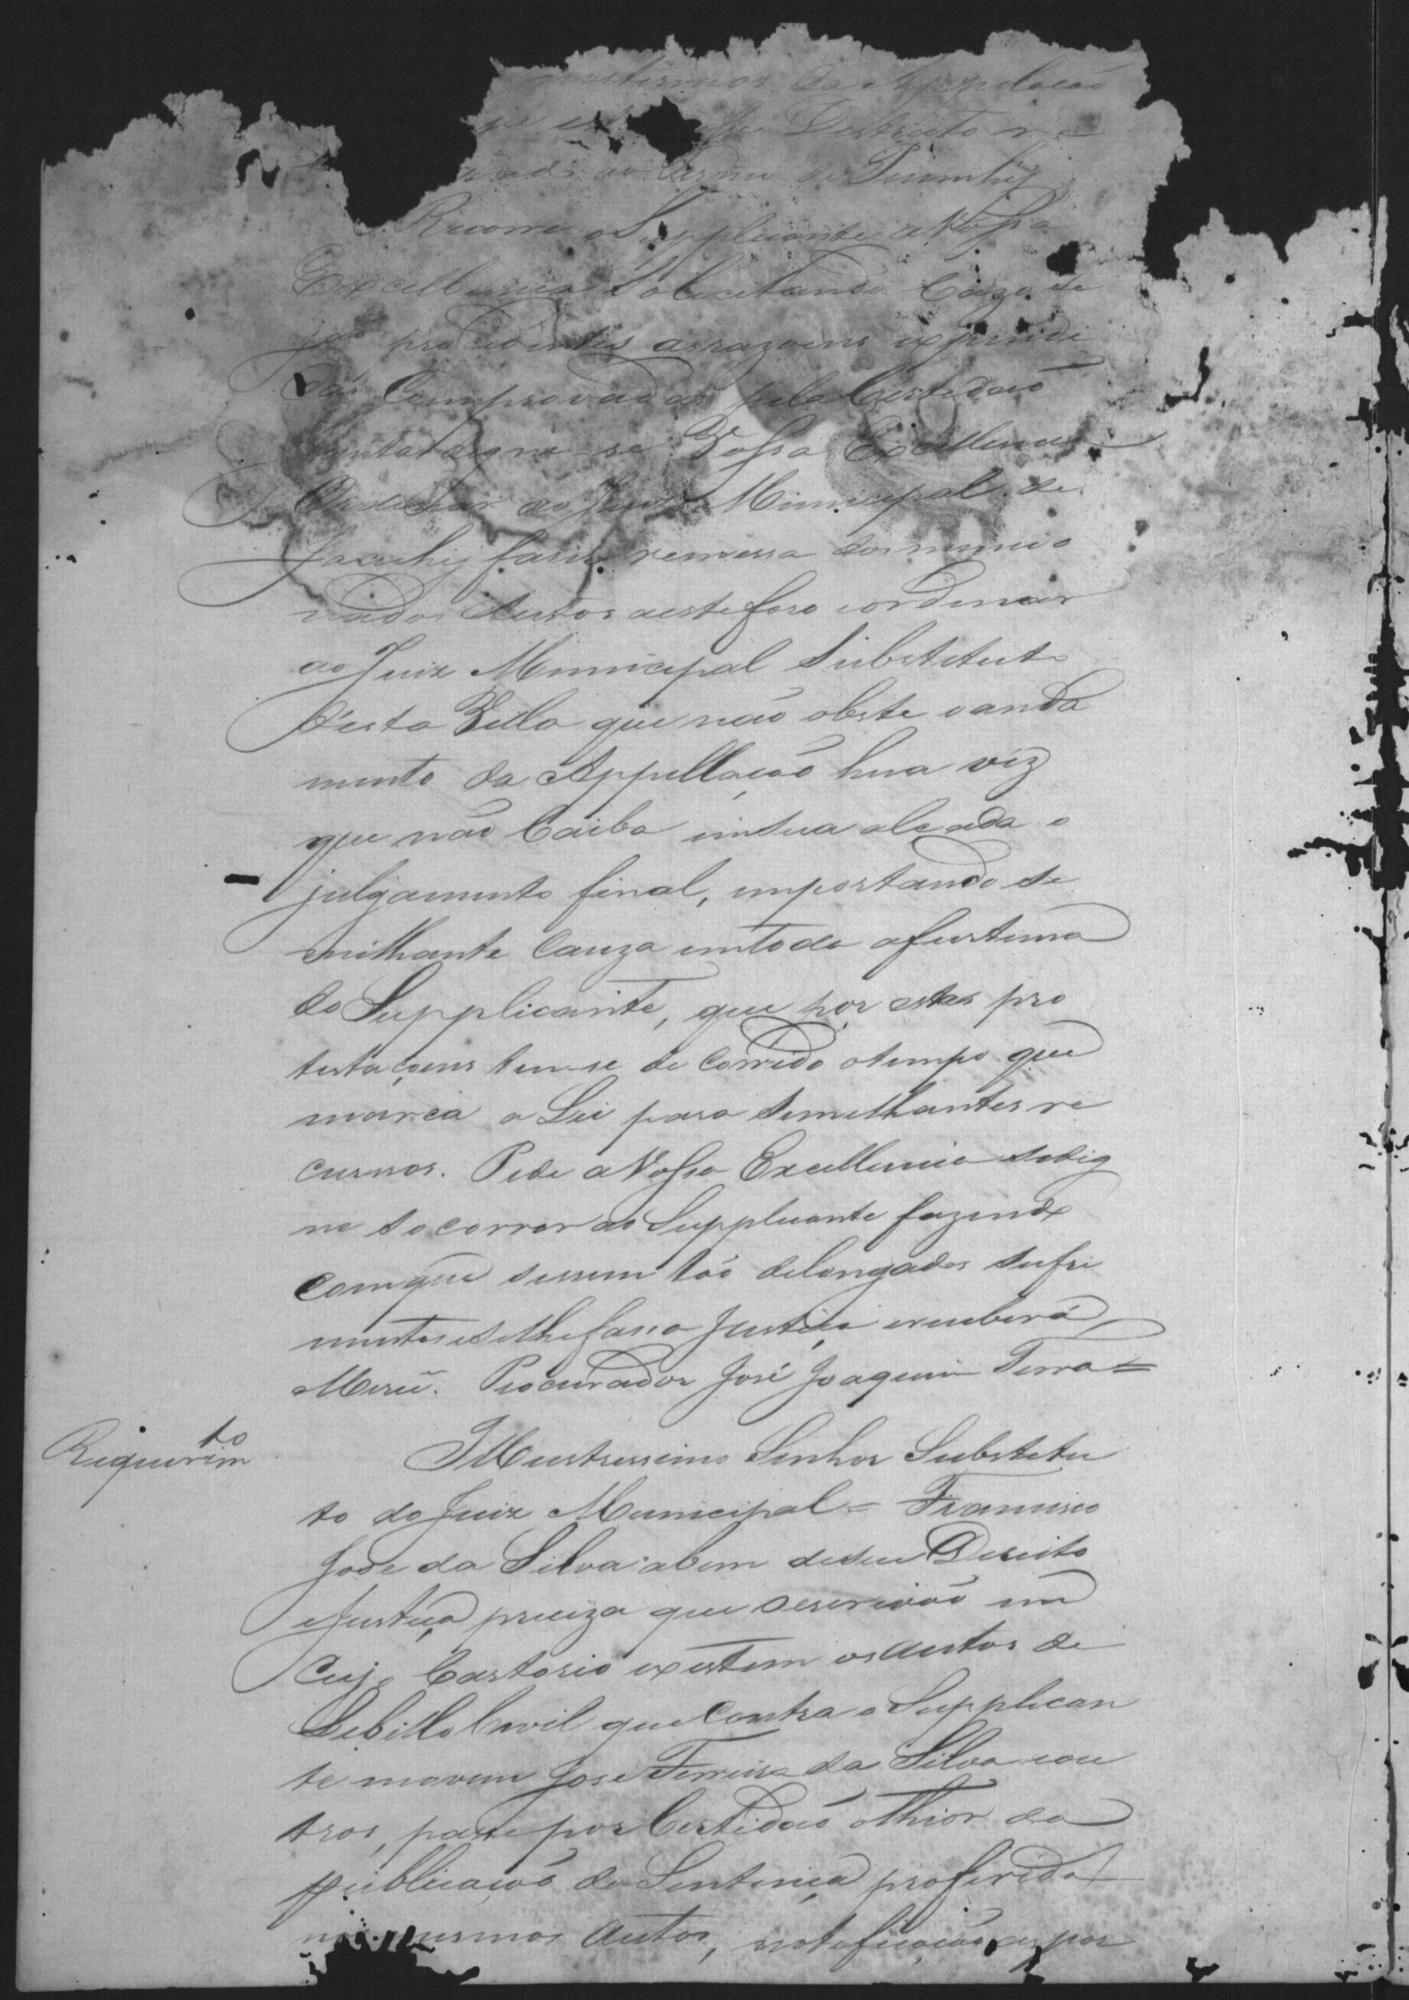 da Appelação
Destricto re
ao Termo de Piumhÿ
Recorre o Supplicante a Vossa
Excellencia Solicitando Cazo se
jão procedentes as razoens expendi
das Comprovadas pela Certidão
junta digne-se Vossa Excellencia
Ordenar ao Juiz Municipal de
Jacuhÿ fasa remessa dos mencio
nados Autos a este foro e ordenar
ao Juiz Municipal Substituto
d'esta Villa que não obste o anda
mento da Appellação hua vez
que não Caiba em sua alçada o
julgamento final, importando se
milhante Cauza em toda a furtuna
do Supplicante, que por estas pro
testaçoens tem-se de Corrido o tempo que
marca a Lei para semelhantes re
cursos. Pede a Vossa Excellencia se dig
ne socorrer ao Supplicante fazendo
com que sessem tão delongados sufri
mentos e se lhe fassa Justiça e receberá
Merce. Procurador José Joaquim Terra =
Requerim.to
Illustrissimo Senhor Substetu
to do Juiz Municipal = Francisco
José da Silva a bem de seu Direito
e Justiça preciza que o escrivão em
Cujo Cartorio existem os autos de
Libello Civil que Contra o Supplican
te movem José Ferreira da Silva e ou
tros, passe por Certidão o thior da
publicação da Sentença proferida
nos mesmos Autos, notificação as por